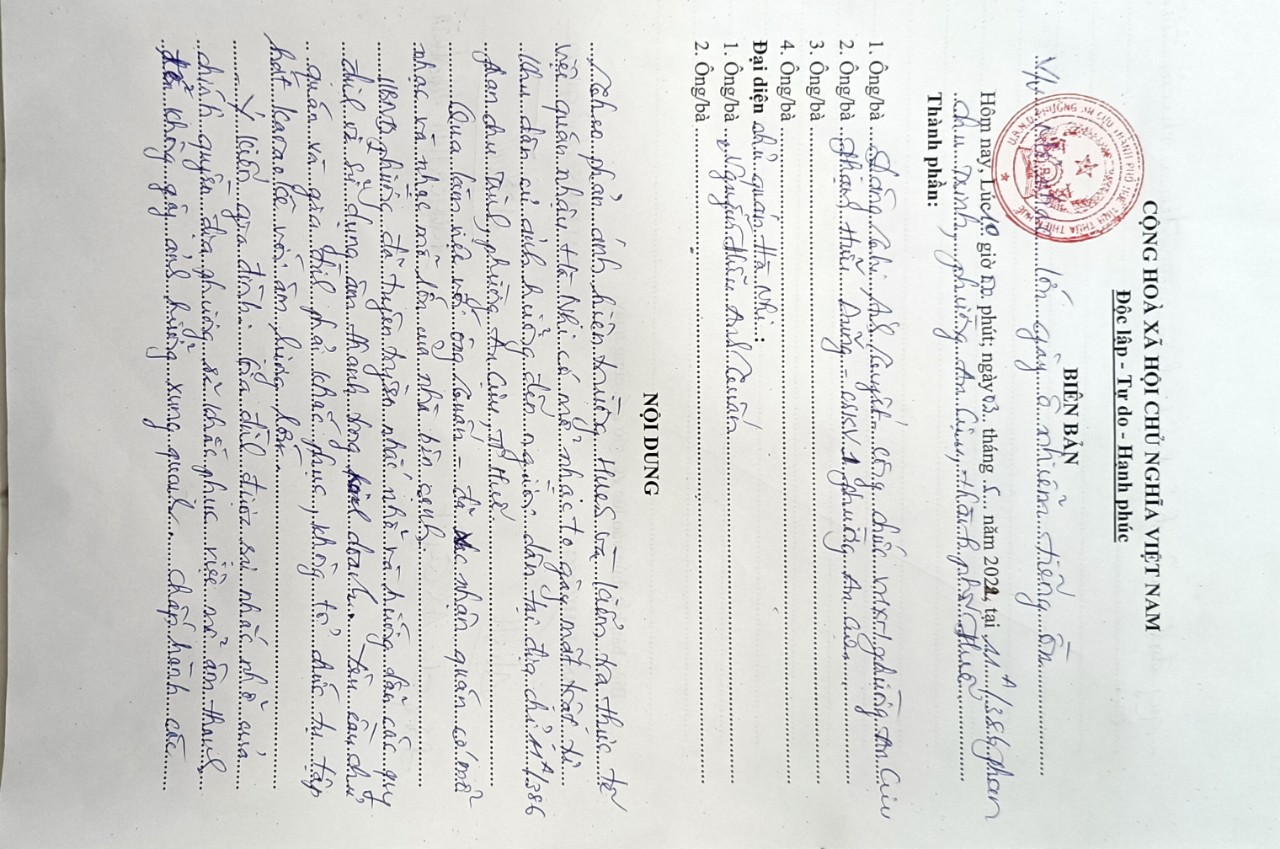 CỘNG HOÀ XÃ HỘI CHỦ NGHĨA VIỆT NAM
Độc lập - Tự do - Hạnh phúc
BIÊN BẢN
lớn gây ô nhiễm tiếng ồn
U.B.N.D. PHƯỜNG AN CỰU THÀNH PHỐ HUẾ TỈNH THỪA THIÊN HUẾ
Hôm nay, Lúc 10 giờ 00 phút; ngày 03 tháng 5 năm 2022, tại 11A/386 phan
chu Trinh, phường An Cựu, thành phố Huế
Thành phần:
1. Ông/bà công chức phường An Cựu
2. Ông/bà Phạm Hữu Dũng - CSKV phường An Cựu
3. Ông/bà
4. Ông/bà
Đại diện chủ quán Hà Nhi :
1. Ông/bà Nguyễn Hữu Anh
2. Ông/bà
NỘI DUNG
Theo phản ánh hiện trường HueS và kiểm tra thực tế
việc quán nhậu Hà Nhi có mở nhạc to gây mất trật tự
khu dân cư ảnh hưởng đến người dân tại địa chỉ 11A/386
Phan chu Trinh, phường An Cựu, TP Huế
Qua làm việc với ông đã nhận quán có mở
nhạc và nhạc mở lớn của nhà bên cạnh.
UBND phường đã tuyên truyền nhắc nhở và hướng dẫn các quy
định về sử dụng âm thanh trong khu yêu cầu chủ
quán và gia đình phải khắc phục, không tổ chức tụ tập
hát karaoke với âm lượng lớn.
Ý kiến gia đình: gia đình được sự nhắc nhở của
chính quyền địa phương sẽ khắc phục việc mở âm thanh
để không gây ảnh hưởng xung quanh. chấp hành các